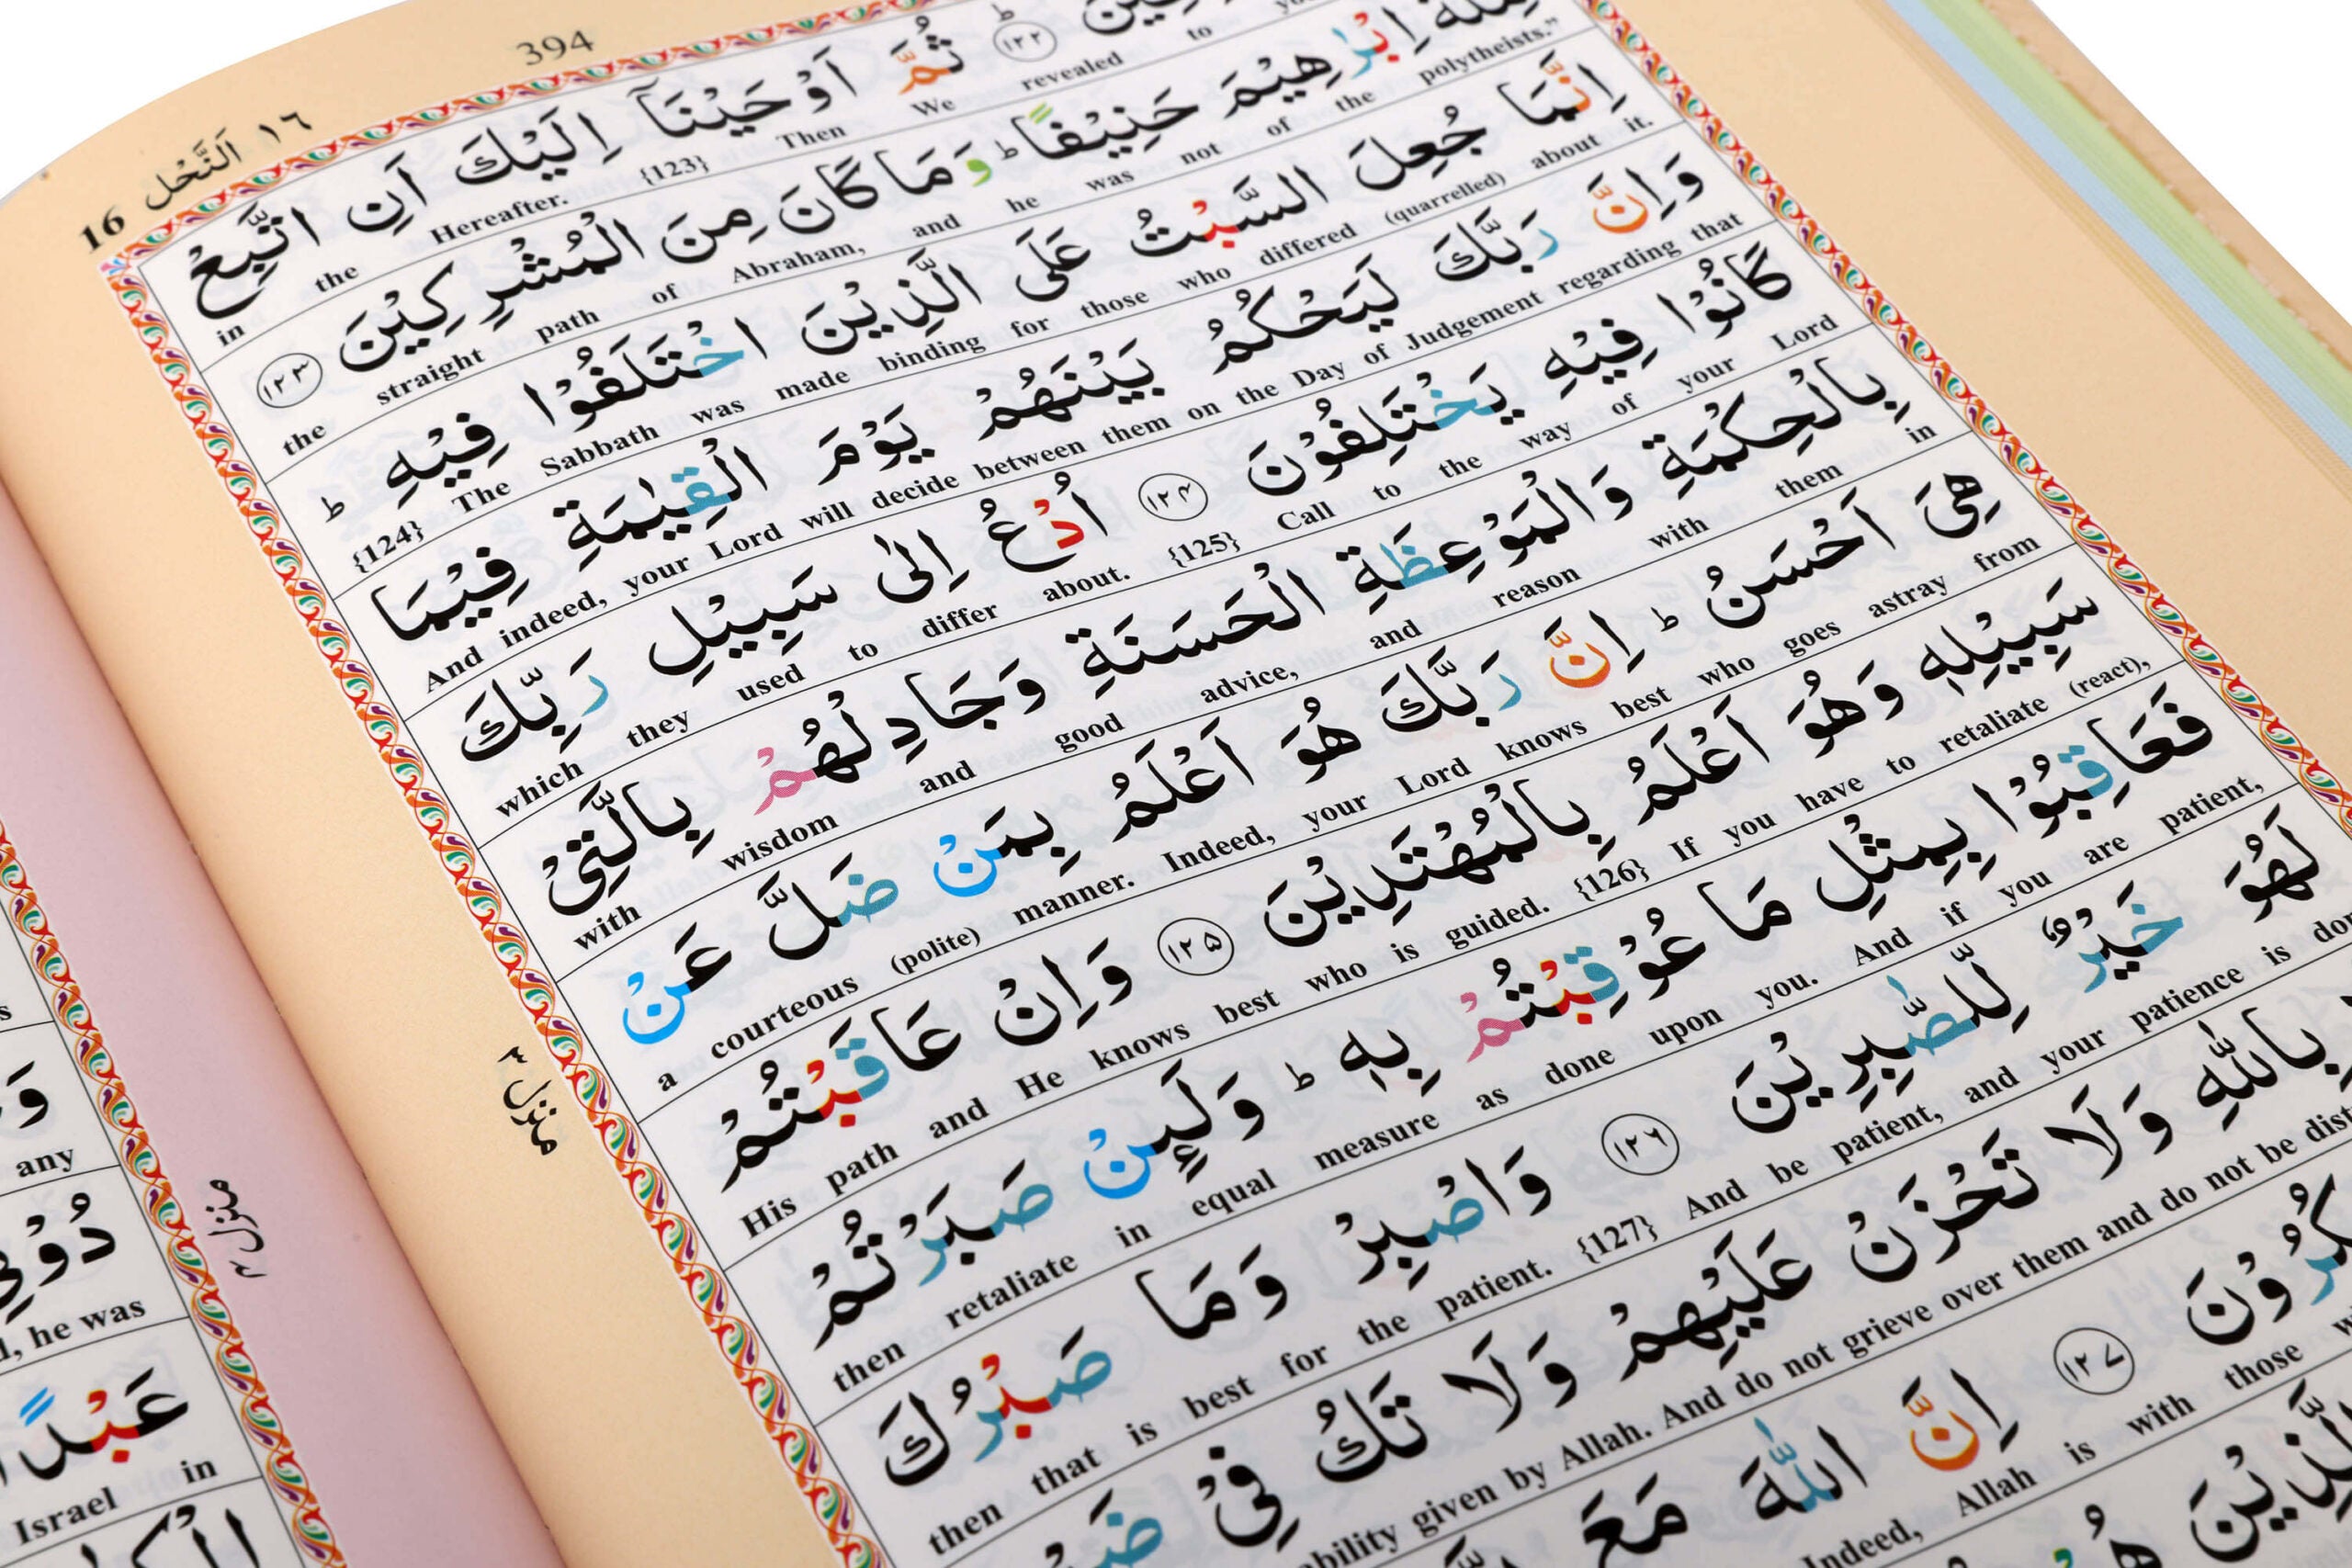 394
١٦ اَلنَّحْل 16
ثُمَّ اَوْحَيْنَآ اِلَيْكَ اَنِ اتَّبِعْ
in the Hereafter. {123} Then We revealed to
اِبْرٰهِيْمَ حَنِيْفًا ؕ وَمَا كَانَ مِنَ الْمُشْرِكِيْنَ ١٢٣
the straight path of Abraham, and he was not of the polytheists.”
اِنَّمَا جُعِلَ السَّبْتُ عَلَى الَّذِيْنَ اخْتَلَفُوْا فِيْهِ ؕ
{124} The Sabbath was made binding for those who differed (quarrelled) about it.
وَاِنَّ رَبَّكَ لَيَحْكُمُ بَيْنَهُمْ يَوْمَ الْقِيٰمَةِ فِيْمَا
And indeed, your Lord will decide between them on the Day of Judgement regarding that
كَانُوْا فِيْهِ يَخْتَلِفُوْنَ ١٢٤ اُدْعُ اِلٰى سَبِيْلِ رَبِّكَ
which they used to differ about. {125} Call to the way of your Lord
بِالْحِكْمَةِ وَالْمَوْعِظَةِ الْحَسَنَةِ وَجَادِلْهُمْ بِالَّتِيْ
with wisdom and good advice, and reason with them in
هِيَ اَحْسَنُ ؕ اِنَّ رَبَّكَ هُوَ اَعْلَمُ بِمَنْ ضَلَّ عَنْ
a courteous (polite) manner. Indeed, your Lord knows best who goes astray from
سَبِيْلِهٖ وَهُوَ اَعْلَمُ بِالْمُهْتَدِيْنَ ١٢٥ وَاِنْ عَاقَبْتُمْ
His path and He knows best who is guided. {126} If you have to retaliate (react),
فَعَاقِبُوْا بِمِثْلِ مَا عُوْقِبْتُمْ بِهٖ ؕ وَلَئِنْ صَبَرْتُمْ
then retaliate in equal measure as done upon you. And if you are patient,
لَهُوَ خَيْرٌ لِّلصّٰبِرِيْنَ ١٢٦ وَاصْبِرْ وَمَا صَبْرُكَ
then that is best for the patient. {127} And be patient, and your patience is
بِاللّٰهِ وَلَا تَحْزَنْ عَلَيْهِمْ وَلَا تَكُ فِيْ
given by Allah. And do not grieve over them and do not be
١٢٧ اِنَّ اللّٰهَ مَعَ
Indeed, Allah is with those
منزل ٣
منزل ٣
any
he was
عَبْدًا
Israel in